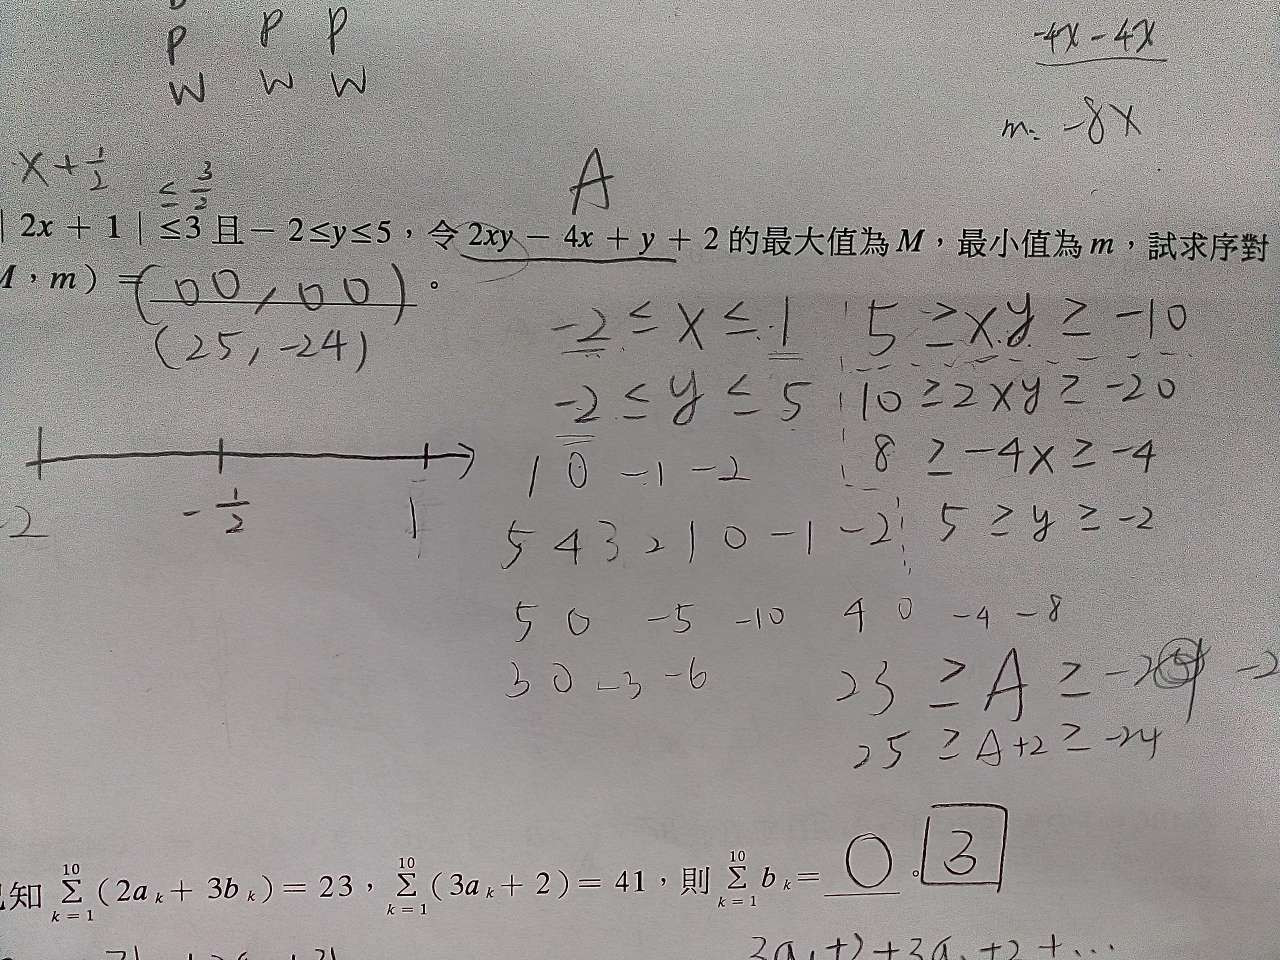 P P P
W W W
-4x - 4x
m = -8x
x + 1/2 ≤ 3/2
A
| 2x + 1 | ≤3 且 - 2≤y≤5,令 2xy - 4x + y + 2 的最大值為 M,最小值為 m,試求序對
, m ) = (00, 00)。
(25, -24)
-2 ≤ x ≤ 1
5 ≥ xy ≥ -10
-2 ≤ y ≤ 5
10 ≥ 2xy ≥ -20
8 ≥ -4x ≥ -4
-2 -1/2 1
1 0 -1 -2
5 4 3 2 1 0 -1 -2
5 ≥ y ≥ -2
5 0 -5 -10
4 0 -4 -8
3 0 -3 -6
23 ≥ A ≥
25 ≥ A+2 ≥ -24
知 ∑_{k=1}^{10} (2a_k + 3b_k) = 23,∑_{k=1}^{10} (3a_k + 2) = 41,則 ∑_{k=1}^{10} b_k = 0。3
3a₁+2+3a +2+...